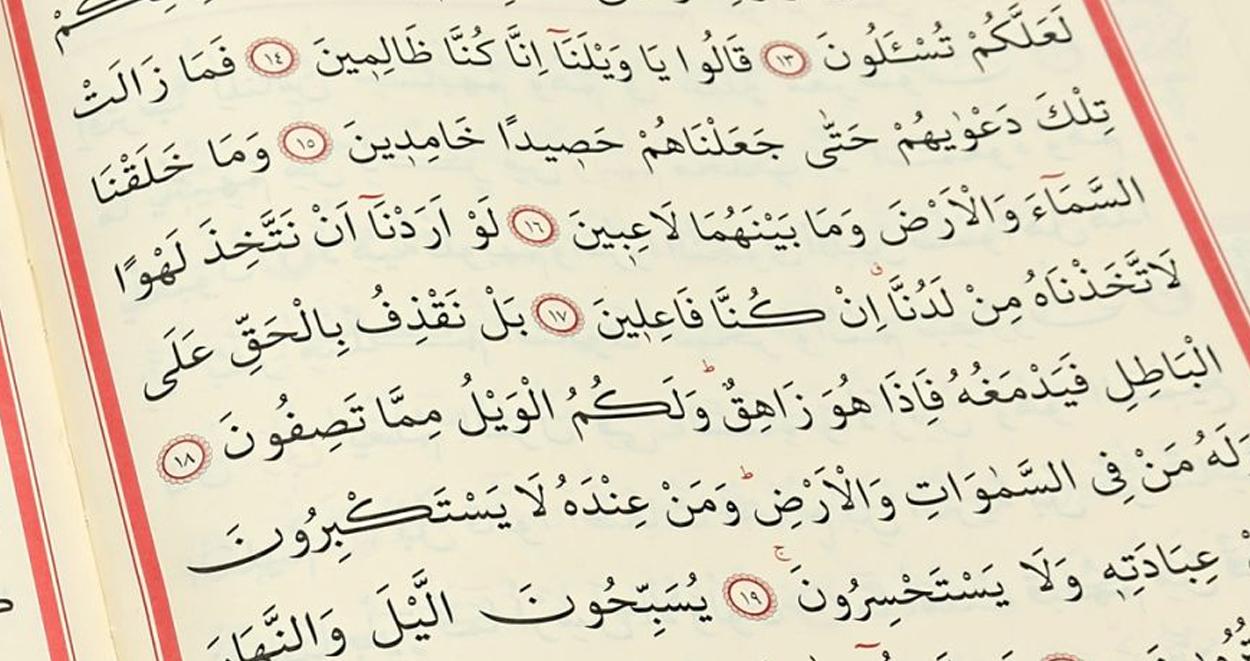 لَعَلَّكُمْ تُسْـَٔلُونَ ﴿١٣﴾ قَالُوا يَا وَيْلَنَٓا اِنَّا كُنَّا ظَالِمٖينَ ﴿١٤﴾ فَمَا زَالَتْ
تِلْكَ دَعْوٰيهُمْ حَتّٰى جَعَلْنَاهُمْ حَصٖيدًا خَامِدٖينَ ﴿١٥﴾ وَمَا خَلَقْنَا
السَّمَٓاءَ وَالْاَرْضَ وَمَا بَيْنَهُمَا لَاعِبٖينَ ﴿١٦﴾ لَوْ اَرَدْنَٓا اَنْ نَتَّخِذَ لَهْوًا
لَاتَّخَذْنَاهُ مِنْ لَدُنَّا ق اِنْ كُنَّا فَاعِلٖينَ ﴿١٧﴾ بَلْ نَقْذِفُ بِالْحَقِّ عَلَى
الْبَاطِلِ فَيَدْمَغُهُ فَاِذَا هُوَ زَاهِقٌ ط وَلَكُمُ الْوَيْلُ مِمَّا تَصِفُونَ ﴿١٨﴾
وَلَهُ مَنْ فِى السَّمٰوَاتِ وَالْاَرْضِ ط وَمَنْ عِنْدَهُ لَا يَسْتَكْبِرُونَ
عِبَادَتِهٖ وَلَا يَسْتَحْسِرُونَ ج ﴿١٩﴾ يُسَبِّحُونَ الَّيْلَ وَالنَّهَارَ